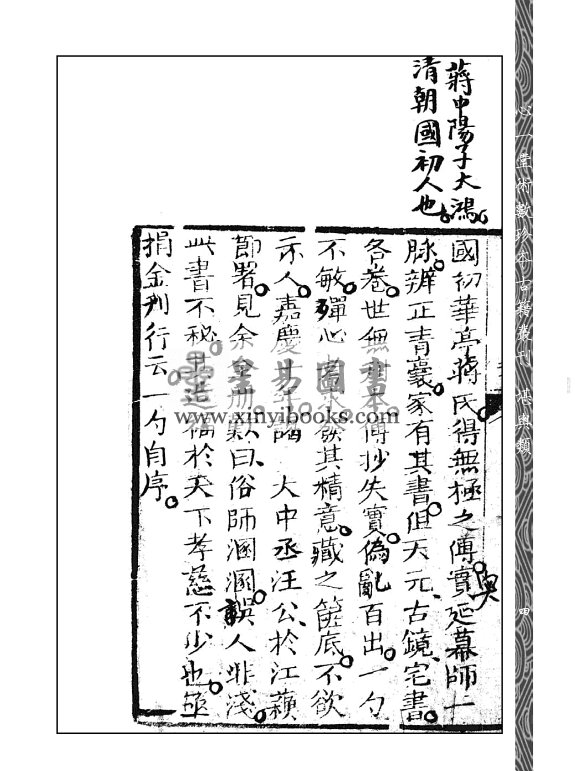 蔣中陽子大鴻
清朝國初人也
國初華亭蔣氏得無極之傳實延幕師一
脉辨正青囊家有其書但天元古鏡宅書
各卷世無本傳抄失實偽亂百出一勺
不敏殫心其精意藏之篋底不欲
示人嘉慶 大中丞汪公於江蘓
節署見余冊歎曰俗師溷溷誤人非淺
此書不秘福於天下孝慈不少也亟
捐金刋行云一勺自序
奧
心一堂術數珍本古籍叢刊 堪輿類
四
心一堂易圖書
www.xinyibooks.com